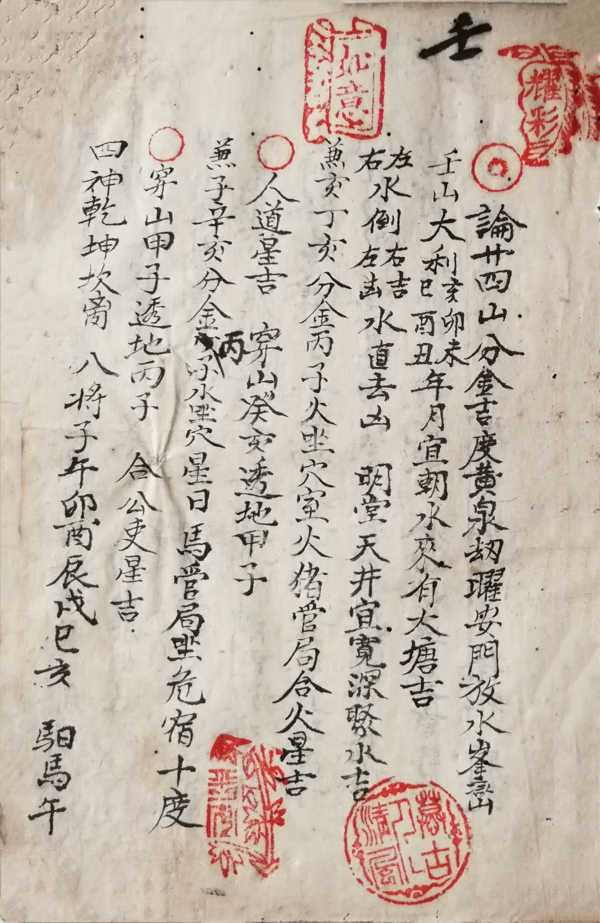 壬
耀彩
如意
論廿四山分金吉度黄泉刼曜安門放水峯巒
壬山大利亥卯未巳酉丑年月宜朝水來有大塘吉
左右水倒右吉左凶水直去凶 明堂天井宜寬深聚水吉
兼亥丁亥分金丙子火坐穴室火猪管局合火星吉
人道星吉 穿山癸亥透地甲子
兼子辛亥分金丙子水坐穴星日馬管局坐危宿十度
穿山甲子透地丙子 合公吏星吉
四神乾坤坎离 八將子午卯酉辰戌巳亥 馹馬午